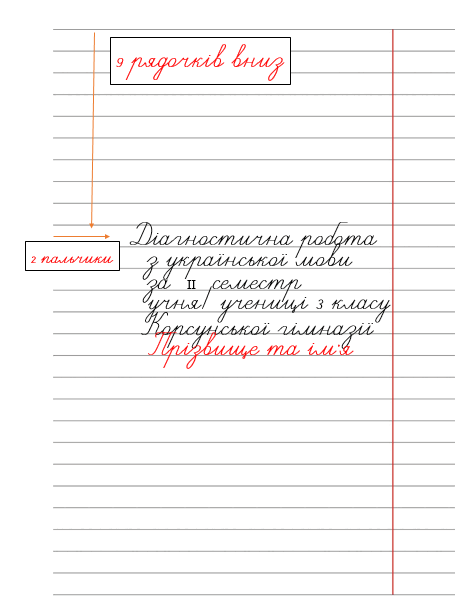 9 рядочків вниз
Діагностична робота
2 пальчики
з української мови
за II семестр
учня/ учениці 3 класу
Корсунської гімназії
Прізвище та ім'я